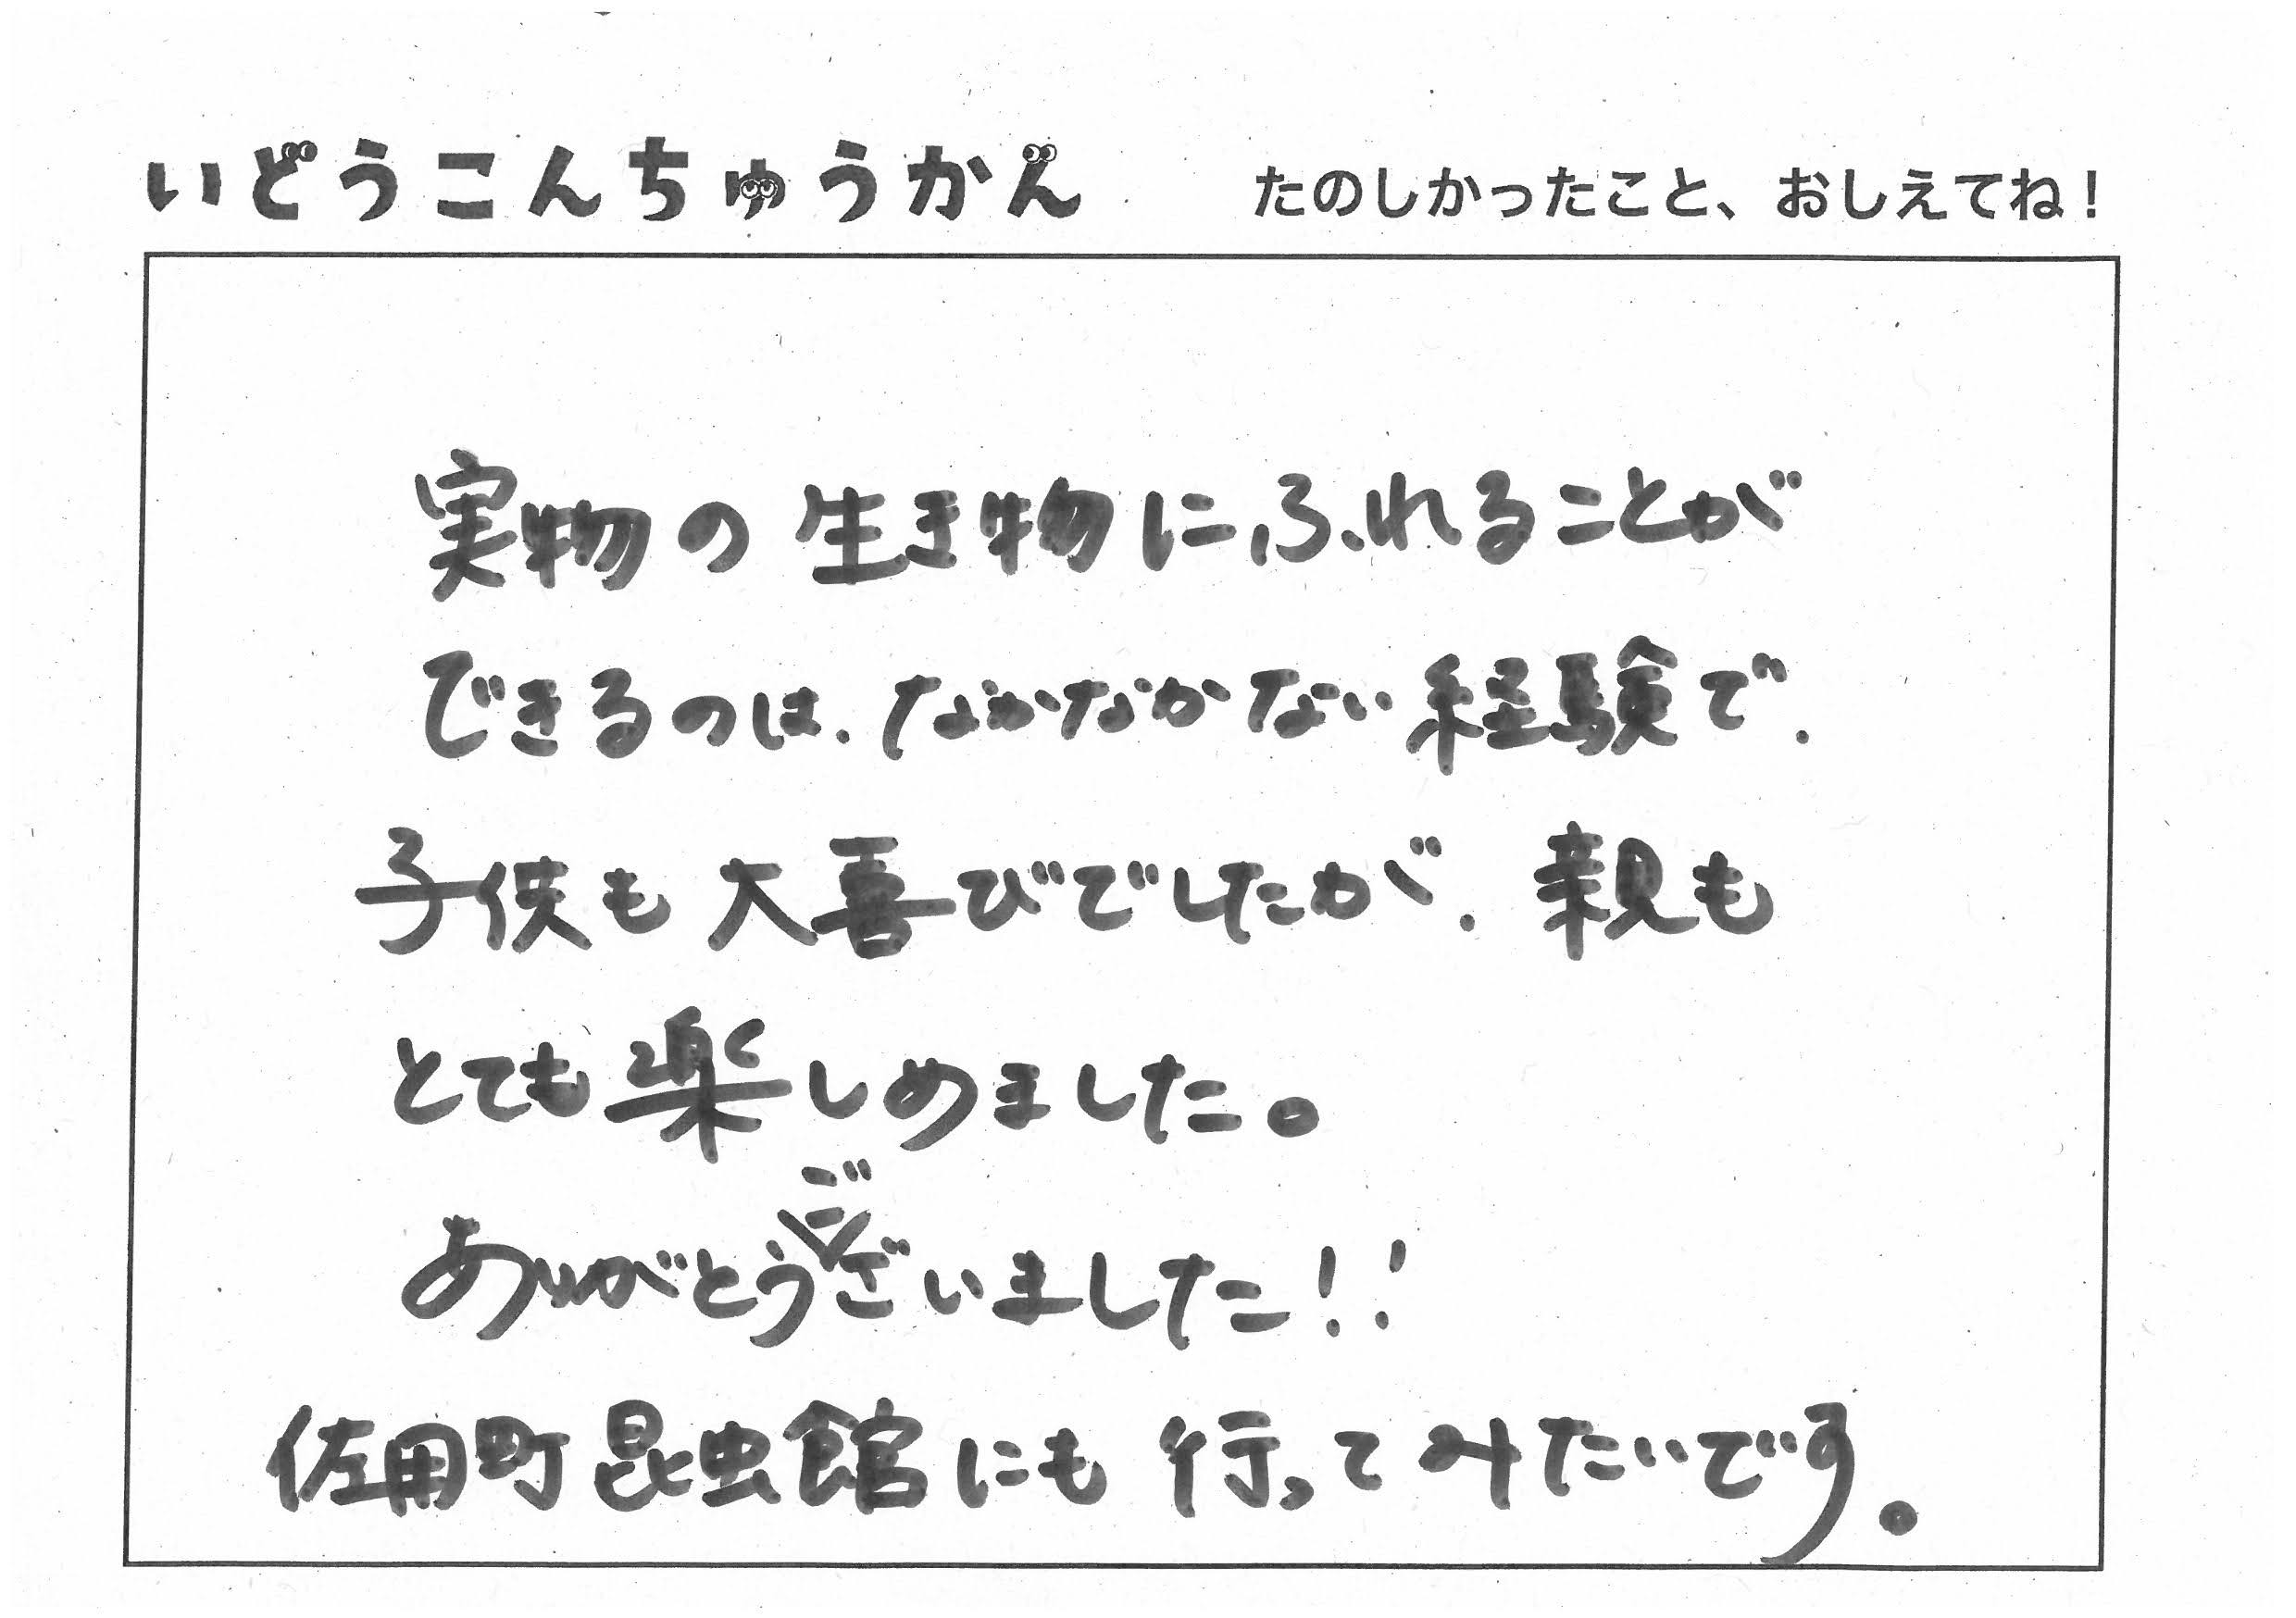 いどうこんちゅうかん　たのしかったこと、おしえてね！
実物の生き物にふれることが
できるのは、なかなかない経験で、
子供も大喜びでしたが、親も
とても楽しめました。
ありがとうございました！！
佐用町昆虫館にも行ってみたいです。